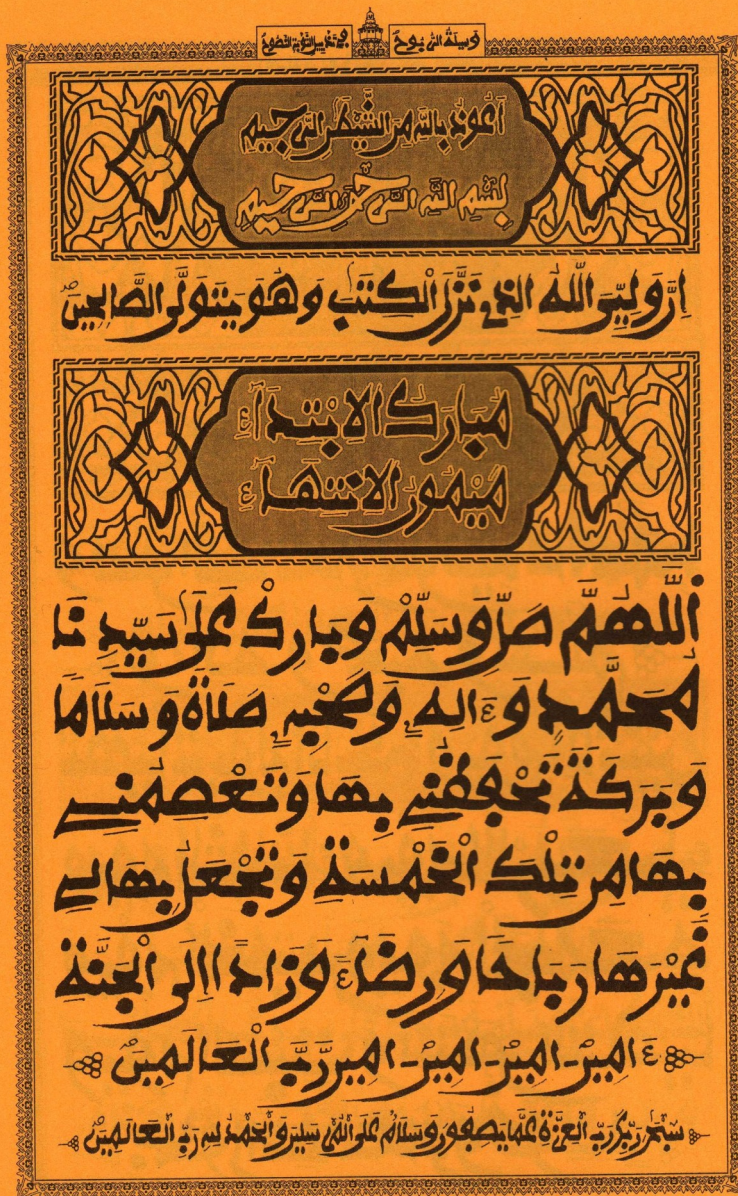 وَسِيلَةُ الرُّبُوحْ في تخميس التوبة النصوح
أَعُوذُ بِاللَّهِ مِنَ الشَّيْطَٰنِ الرَّجِيمِ
بِسْمِ اللَّهِ الرَّحْمَٰنِ الرَّحِيمِ
إِنَّ وَلِيِّيَ اللَّهُ الَّذِي نَزَّلَ الْكِتَٰبَ وَهُوَ يَتَوَلَّى الصَّالِحِينَ
مُبَارَكُ الِابْتِدَآءِ
مَيْمُونُ الِانْتِهَآءِ
اَللَّهُمَّ صَلِّ وَسَلِّمْ وَبَارِكْ عَلَىٰ سَيِّدِنَا
مُحَمَّدٍ وَءَالِهِ وَصَحْبِهِ صَلَاةً وَسَلَامًا
وَبَرَكَةً تَحْفَظُنِي بِهَا وَتَعْصِمُنِي
بِهَا مِن تِلْكَ الْخَمْسَةِ وَتَجْعَلُ بِهَا لِي
غَيْرَهَا رَبَاحًا وَرِضَآءً وَزَادًا اِلَى الْجَنَّةِ
ءَامِينَ - امِينَ - امِينَ - امِينَ رَبَّ الْعَالَمِينَ
سُبْحَٰنَ رَبِّكَ رَبِّ الْعِزَّةِ عَمَّا يَصِفُونَ وَسَلَامٌ عَلَى الْمُرْسَلِينَ وَالْحَمْدُ لِلَّهِ رَبِّ الْعَالَمِينَ